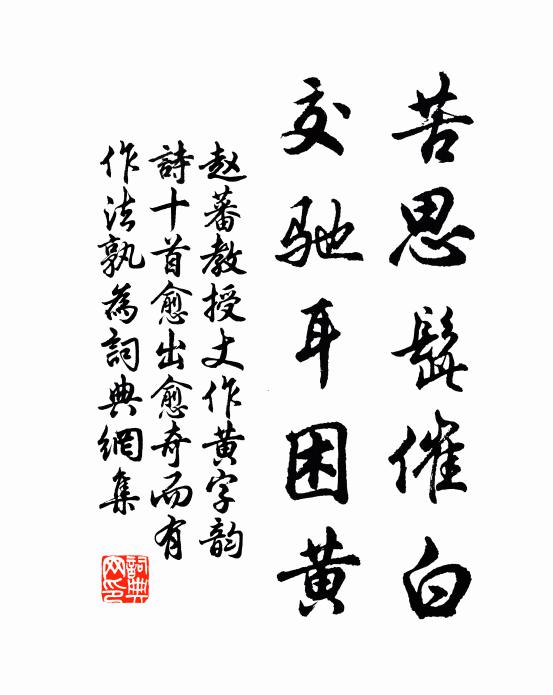 苦思髭催白
交驰耳困黄
赵蕃教授丈作黄字韵
詩十首愈出愈奇而有
作法孰為詞典網集
詞典网印